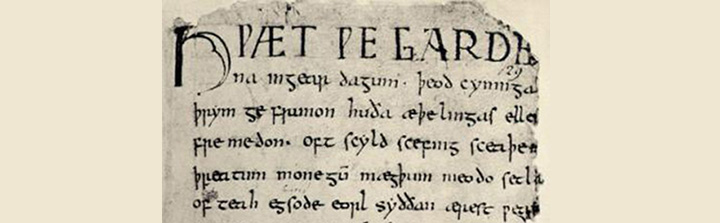 HǷÆT ǷE GARDE
129
na ingear dagum · þeod cyninga
þrym ge frunon huða æþelingas elle
fremedon · oft scyld scefing sceaþe
þreatum monegū mægþum meodo setla
of teah egsode eorl syððan ærest